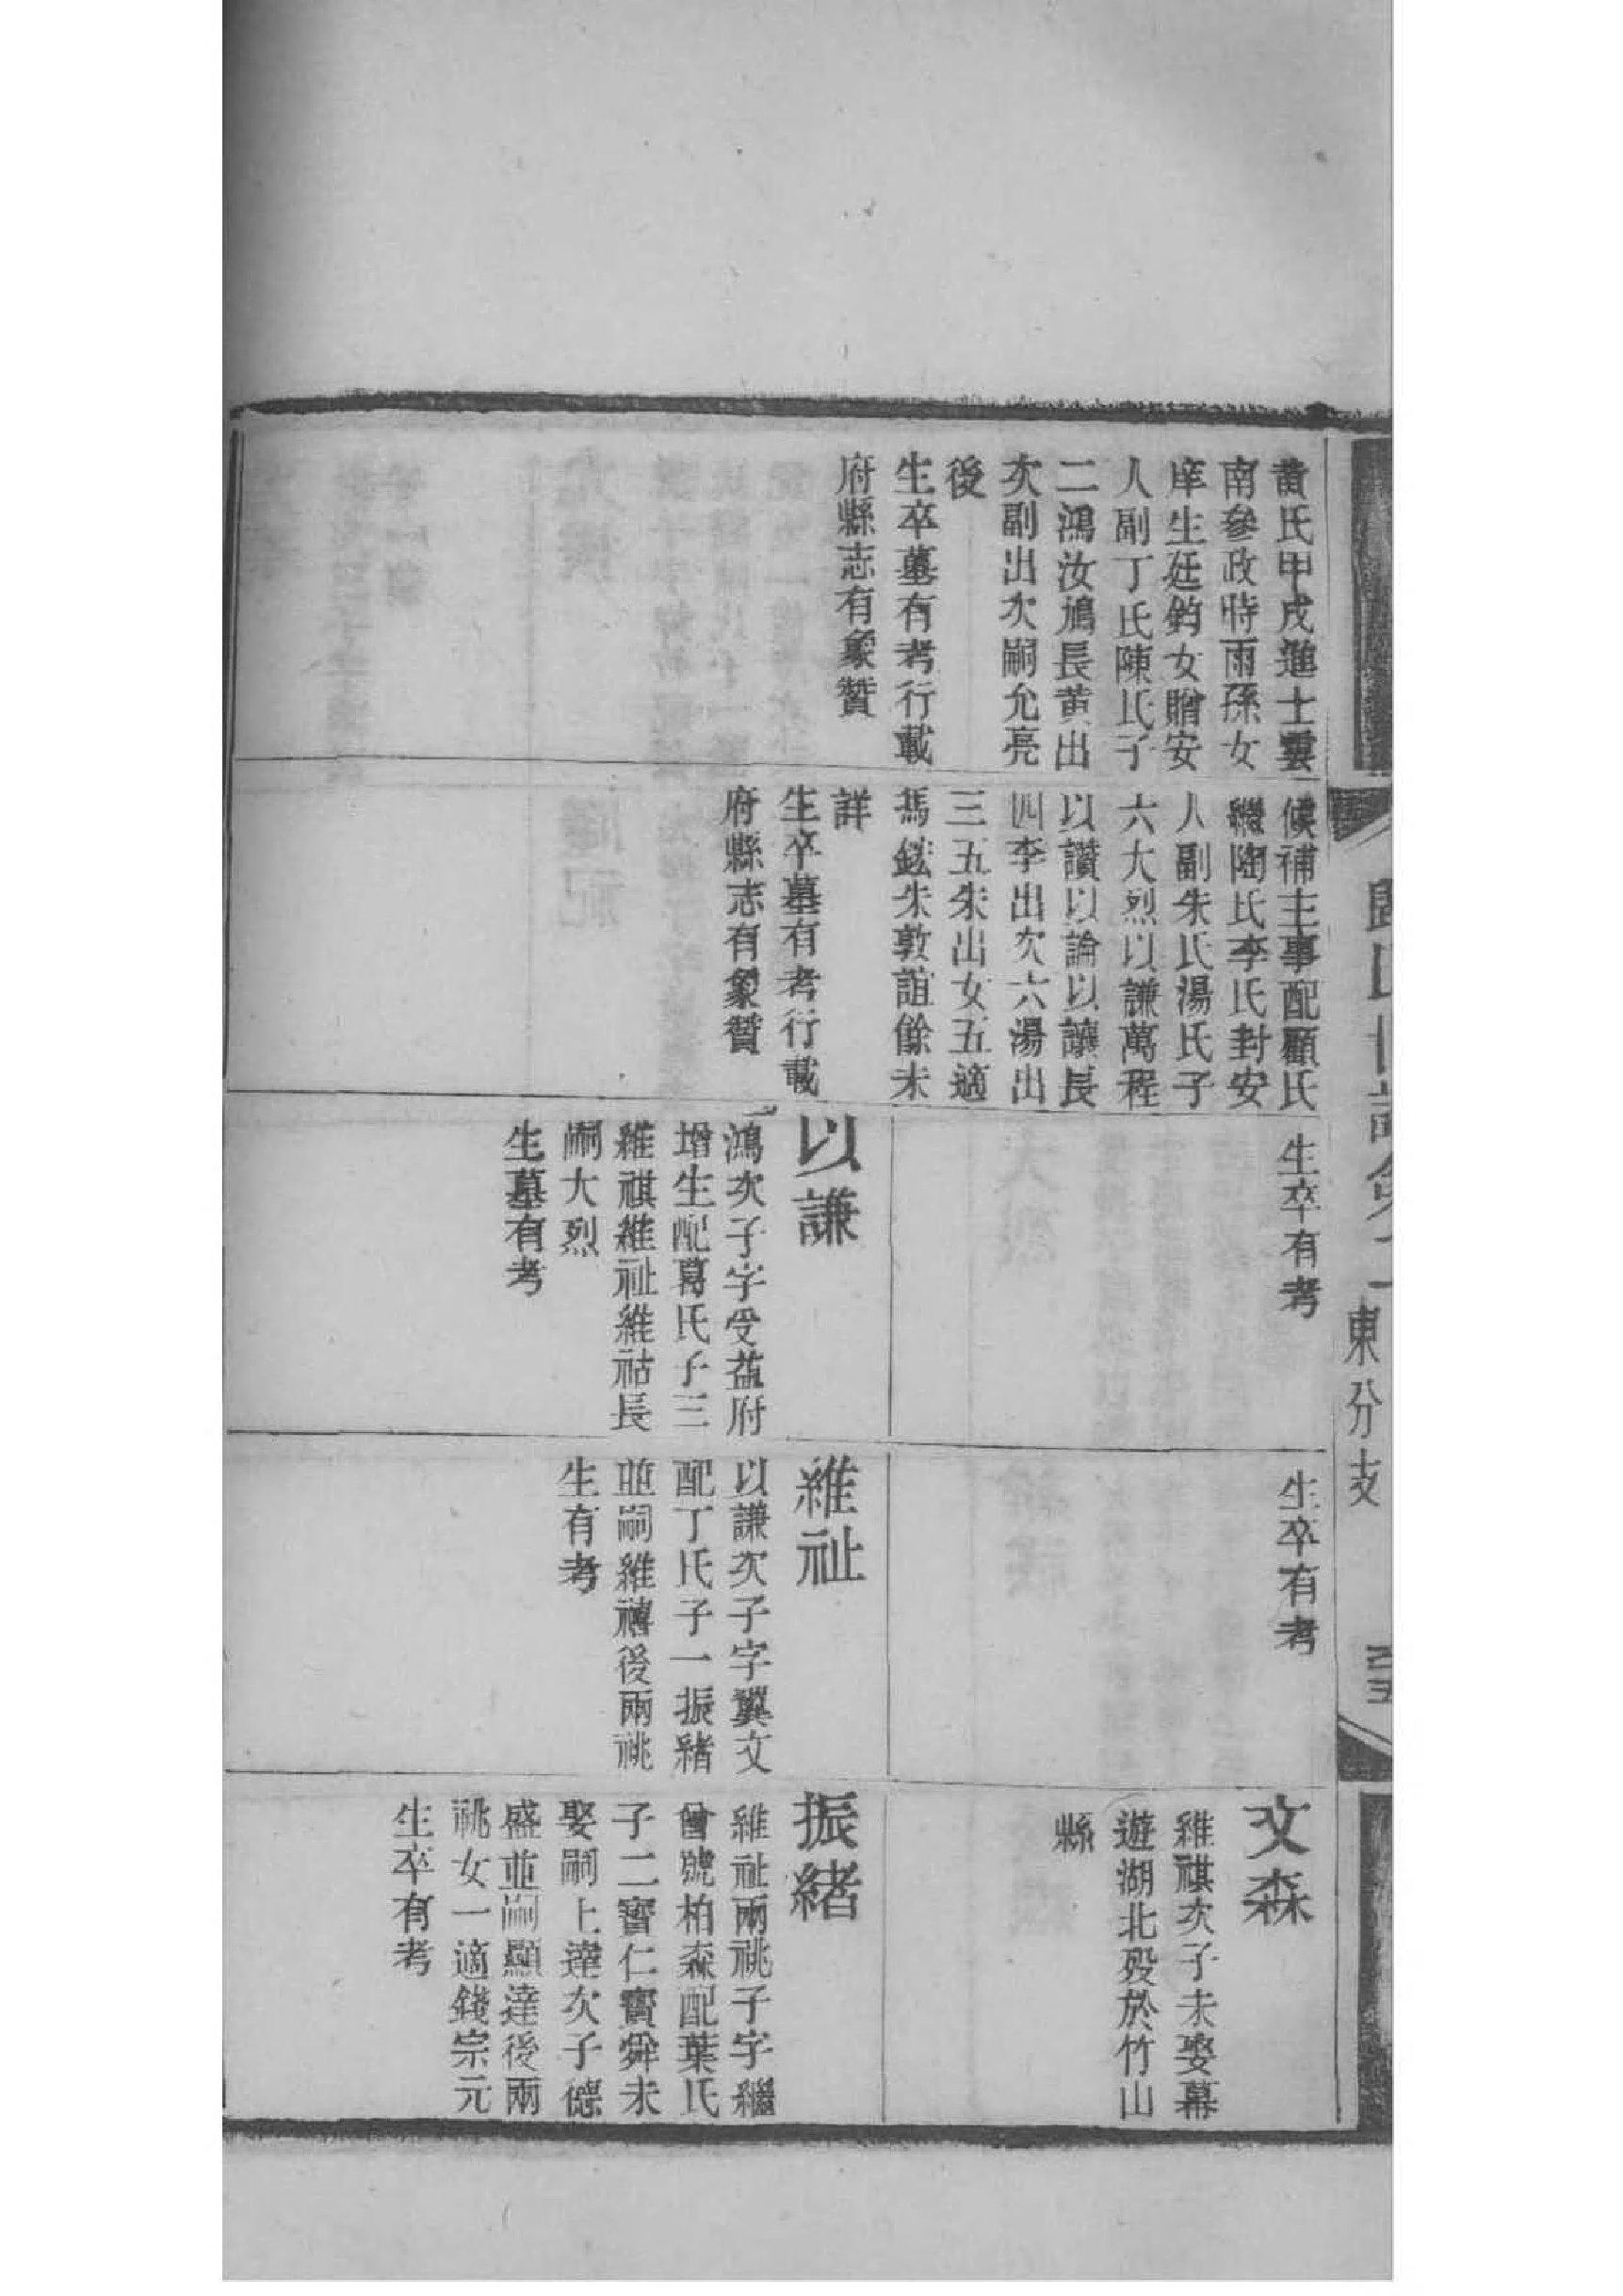 黄氏甲戌進士雲
南參政時雨孫女
庠生廷鈞女贈安
人副丁氏陳氏子
二鴻汝鴻長黄出
次副出次嗣允亮
後
生卒墓有考行載
府縣志有象贊
候補主事配顧氏
繼陶氏李氏封安
人副朱氏湯氏子
六大烈以謙萬程
以讚以論以讓長
四李出次六湯出
三五朱出女五適
馮鉉朱敦誼餘未
詳
生卒墓有考行載
府縣志有象贊
生卒有考
以謙
鴻次子字受益府
增生配葛氏子三
維祺維祉維祜長
嗣大烈
生墓有考
生卒有考
維祉
以謙次子字翼文
配丁氏子一振緒
並嗣維禧後兩祧
生有考
文森
維祺次子未娶幕
遊湖北歿於竹山
縣
振緒
維祉兩祧子字繼
曾號柏森配葉氏
子二寶仁寶舜未
娶嗣上達次子德
盛並嗣顯達後兩
祧女一適錢宗元
生卒有考
東分支